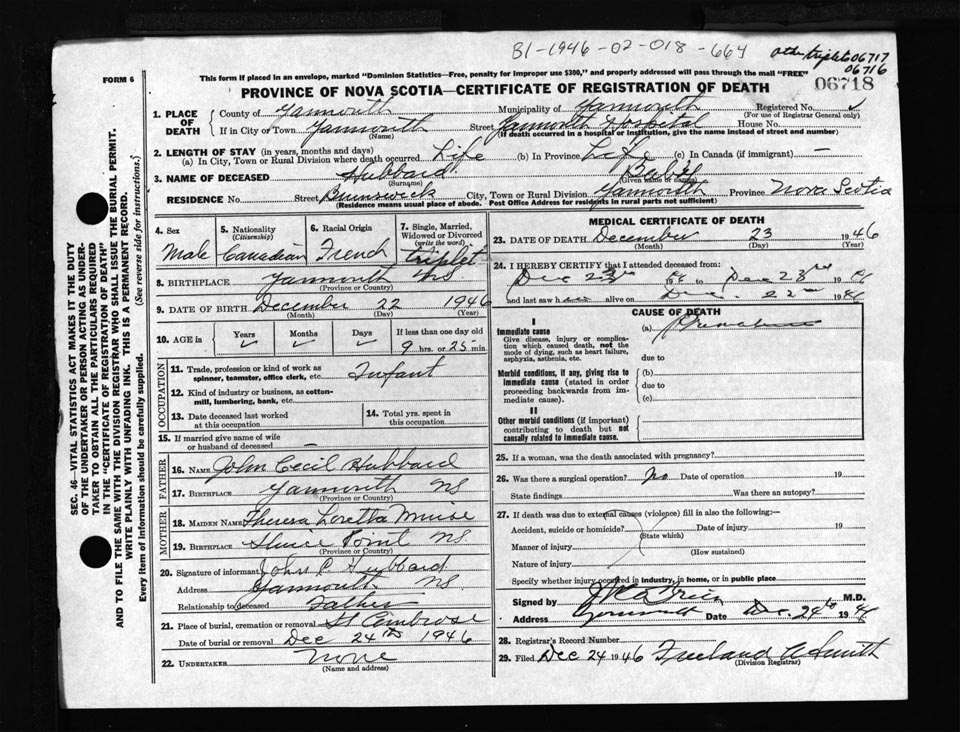 B1-1946-02-018-664
other triplets 06717
06716
FORM 6
This form if placed in an envelope, marked "Dominion Statistics—Free, penalty for improper use $300," and properly addressed will pass through the mail "FREE"
06718
PROVINCE OF NOVA SCOTIA—CERTIFICATE OF REGISTRATION OF DEATH
1. PLACE OF DEATH
County of Yarmouth Municipality of Yarmouth Registered No.
(For use of Registrar General only)
If in City or Town Yarmouth Street Yarmouth Hospital House No.
(Name) (If death occurred in a hospital or institution, give the name instead of street and number)
2. LENGTH OF STAY (in years, months and days)
(a) In City, Town or Rural Division where death occurred Life (b) In Province Life (c) In Canada (if immigrant) —
3. NAME OF DECEASED Hubbard
(Surname) (Given name or names)
RESIDENCE No. Street Brunswick City, Town or Rural Division Yarmouth Province Nova Scotia
(Residence means usual place of abode. Post Office Address for residents in rural parts not sufficient)
4. Sex
Male
5. Nationality
(Citizenship)
Canadian
6. Racial Origin
French
7. Single, Married, Widowed or Divorced
(write the word)
triplet
8. BIRTHPLACE Yarmouth NS
(Province or Country)
9. DATE OF BIRTH December 22 1946
(Month) (Day) (Year)
10. AGE in Years Months Days If less than one day old
9 hrs. or 25 min.
OCCUPATION
11. Trade, profession or kind of work as spinner, teamster, office clerk, etc. Infant
12. Kind of industry or business, as cotton-mill, lumbering, bank, etc.
13. Date deceased last worked at this occupation
14. Total yrs. spent in this occupation
15. If married give name of wife or husband of deceased —
FATHER
16. NAME John Cecil Hubbard
17. BIRTHPLACE Yarmouth NS
(Province or Country)
MOTHER
18. MAIDEN NAME Theresa Loretta Muise
19. BIRTHPLACE Sluice Point NS.
(Province or Country)
20. Signature of informant John C Hubbard
Address Yarmouth NS
Relationship to deceased Father
21. Place of burial, cremation or removal St Ambrose
Date of burial or removal Dec 24th 1946
22. UNDERTAKER None
(Name and address)
MEDICAL CERTIFICATE OF DEATH
23. DATE OF DEATH December 23 1946
(Month) (Day) (Year)
24. I HEREBY CERTIFY that I attended deceased from:
Dec 23rd 1946 to Dec 23rd 1946
and last saw him alive on Dec. 22nd 1946
CAUSE OF DEATH
I
Immediate cause
Give disease, injury or complication which caused death, not the mode of dying, such as heart failure, asphyxia, asthenia, etc.
(a)
due to
Morbid conditions, if any, giving rise to immediate cause (stated in order proceeding backwards from immediate cause).
(b)
due to
(c)
II
Other morbid conditions (if important) contributing to death but not causally related to immediate cause.
25. If a woman, was the death associated with pregnancy?
26. Was there a surgical operation? No Date of operation 19
State findings Was there an autopsy?
27. If death was due to external causes (violence) fill in also the following:—
Accident, suicide or homicide? Date of injury 19
(State which)
Manner of injury
(How sustained)
Nature of injury
Specify whether injury occurred in industry, in home, or in public place
Signed by M.D.
Address Yarmouth Date Dec. 24th 1946
28. Registrar's Record Number
29. Filed Dec 24 1946 Freeland A Smith
(Division Registrar)
SEC. 46—VITAL STATISTICS ACT MAKES IT THE DUTY
OF THE UNDERTAKER OR PERSON ACTING AS UNDER-
TAKER TO OBTAIN ALL THE PARTICULARS REQUIRED
IN THE "CERTIFICATE OF REGISTRATION OF DEATH"
AND TO FILE THE SAME WITH THE DIVISION REGISTRAR WHO SHALL ISSUE THE BURIAL PERMIT.
WRITE PLAINLY WITH UNFADING INK. THIS IS A PERMANENT RECORD.
Every item of information should be carefully supplied. (See reverse side for instructions.)